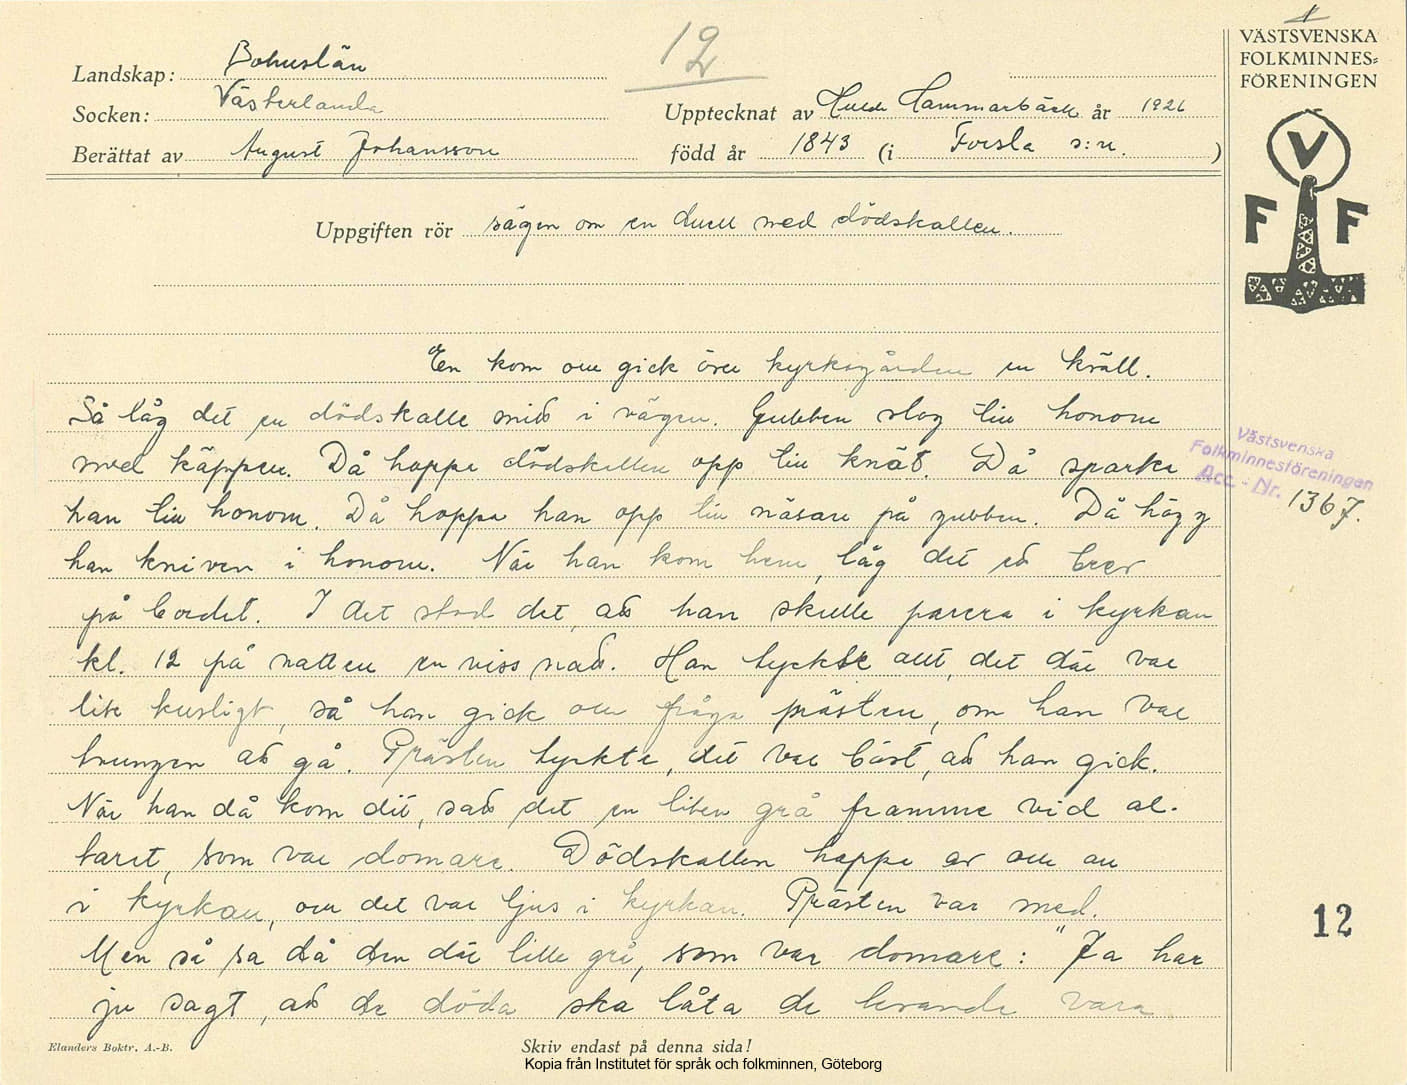 12
VÄSTSVENSKA
FOLKMINNES=
FÖRENINGEN
Landskap: Bohuslän
Socken: Västerlanda
Upptecknat av Hulda Hammarbäck år 1926
Berättat av August Johansson
född år 1843 (i Forsla s:n.)
V
F F
Uppgiften rör sägen om en duell med dödskallen.
En kom ou gick över kyrkogården en kväll.
Så låg det en dödskalle mitt i vägen. Gubben slog till honom
med käppen. Då hoppa dödskallen opp till knät. Då sparka
han till honom. Då hoppa han opp till näsan på gubben. Då högg
han kniven i honom. När han kom hem, låg det ett brev
på bordet. I det stod det, att han skulle parera i kyrkan
kl. 12 på natten en viss natt. Han tyckte att, det där var
lite kusligt, så han gick ou fråga prästen, om han var
tvungen att gå. Prästen tyckte, det var bäst, att han gick.
När han då kom dit, satt det en liten grå framme vid al-
taret, som var domare. Dödskallen hoppa av ou an
i kyrkan, ou det var ljus i kyrkan. Prästen var med.
Men så sa då den där lille grå, som var domare: "Ja har
ju sagt, att de döda ska låta de levande vara
Västsvenska
Folkminnesföreningen
Acc. - Nr. 1367.
12
Elanders Boktr. A.-B.
Skriv endast på denna sida!
Kopia från Institutet för språk och folkminnen, Göteborg